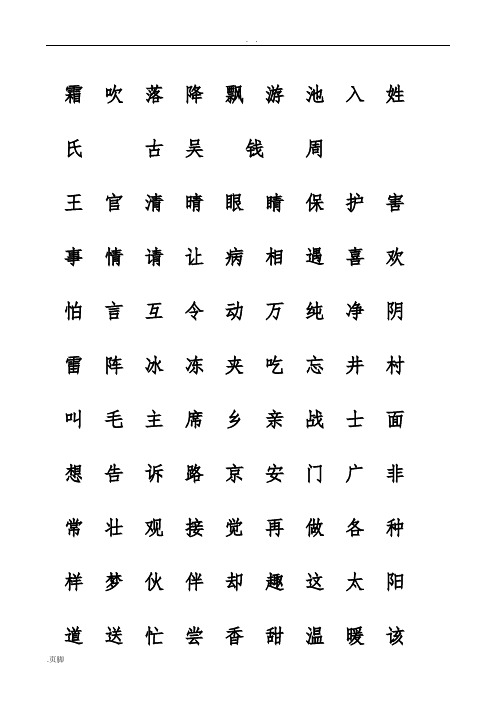 . .
霜 吹 落 降 飘 游 池 入 姓
氏 古 吴 钱 周
王 官 清 晴 眼 睛 保 护 害
事 情 请 让 病 相 遇 喜 欢
怕 言 互 令 动 万 纯 净 阴
雷 阵 冰 冻 夹 吃 忘 井 村
叫 毛 主 席 乡 亲 战 士 面
想 告 诉 路 京 安 门 广 非
常 壮 观 接 觉 再 做 各 种
样 梦 伙 伴 却 趣 这 太 阳
道 送 忙 尝 香 甜 温 暖 该
.页脚